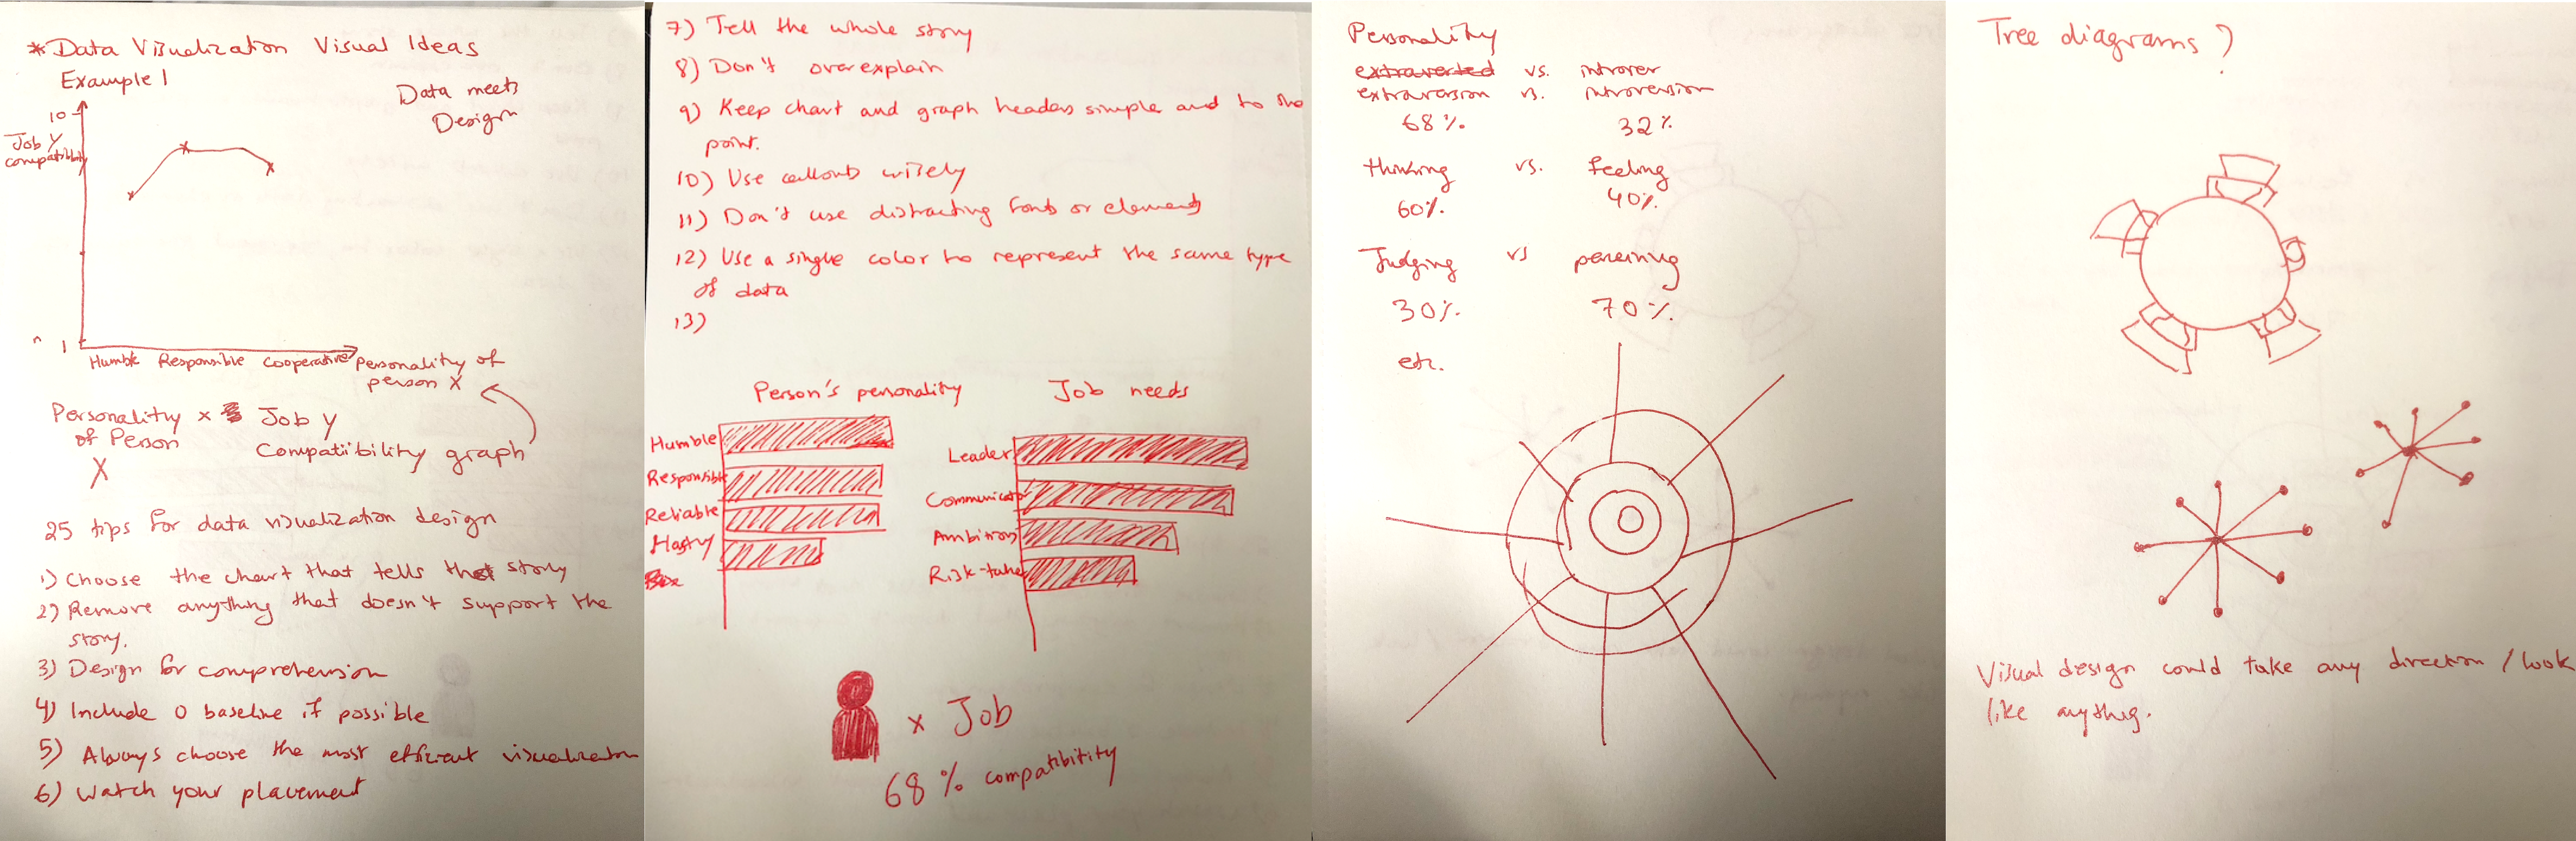 *Data Visualization Visual Ideas
Example 1
Data meets
Design
10
Job Y
compatibility
1
Humble Responsible Cooperative
Personality of
person X
Personality x Job Y
of Person
X
Compatibility graph
25 tips for data visualization design
1) Choose the chart that tells the story
2) Remove anything that doesn't support the
story.
3) Design for comprehension
4) Include 0 baseline if possible
5) Always choose the most efficient visualization
6) Watch your placement
7) Tell the whole story
8) Don't overexplain
9) Keep chart and graph headers simple and to the
point.
10) Use callouts wisely
11) Don't use distracting fonts or elements
12) Use a single color to represent the same type
of data
13)
Person's personality
Humble
Responsible
Reliable
Hasty
Job needs
Leader
Communicator
Ambitious
Risk-taker
x Job
68% compatibility
Personality
extraverted vs. introver
extraversion vs. introversion
68% 32%
thinking vs. feeling
60% 40%
Judging vs perceiving
30% 70%
etc.
Tree diagrams?
Visual design could take any direction / look
like anything.